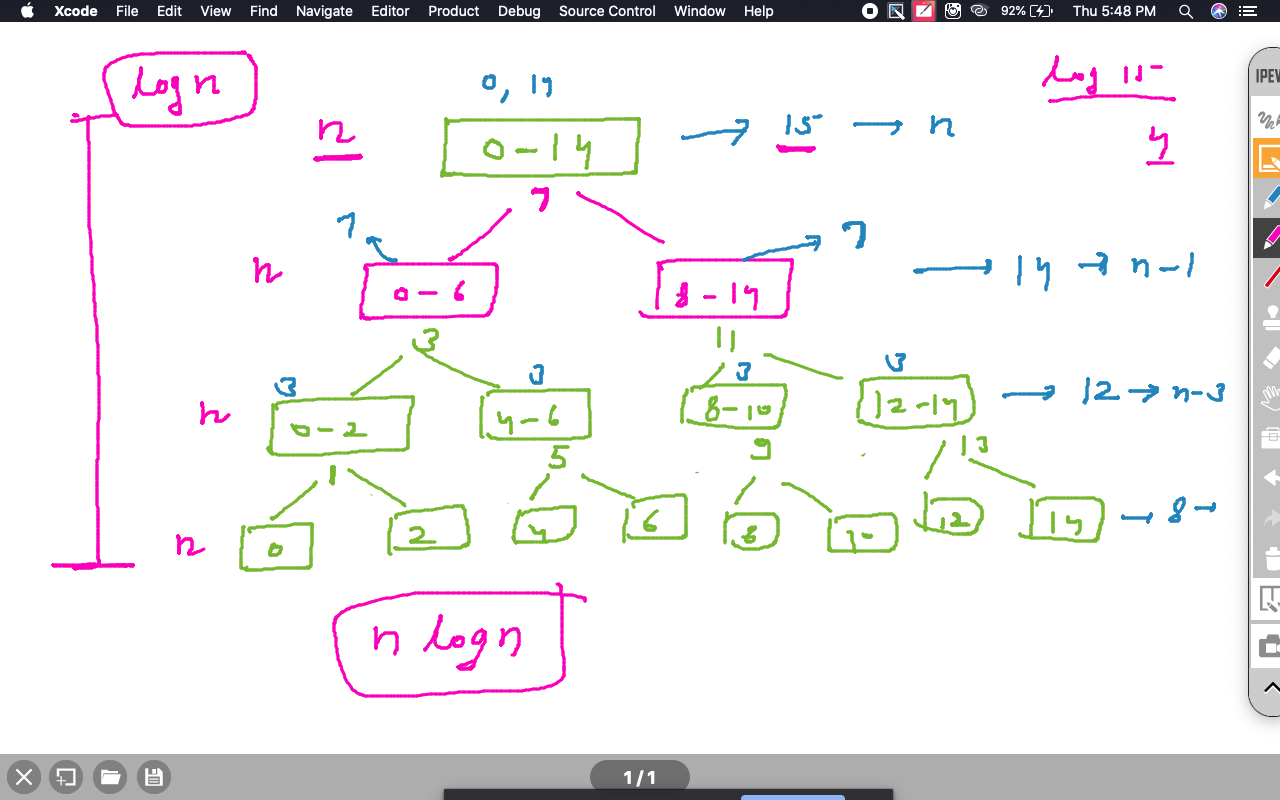 Xcode File Edit View Find Navigate Editor Product Debug Source Control Window Help 92% Thu 5:48 PM
log n
0, 14
log 15
n
0-14
15
n
4
7
7
7
n
0-6
8-14
14
n-1
3
11
3
3
3
3
n
0-2
4-6
8-10
12-14
12
n-3
1
5
9
13
n
0
2
4
6
8
10
12
14
8
n log n
1/1